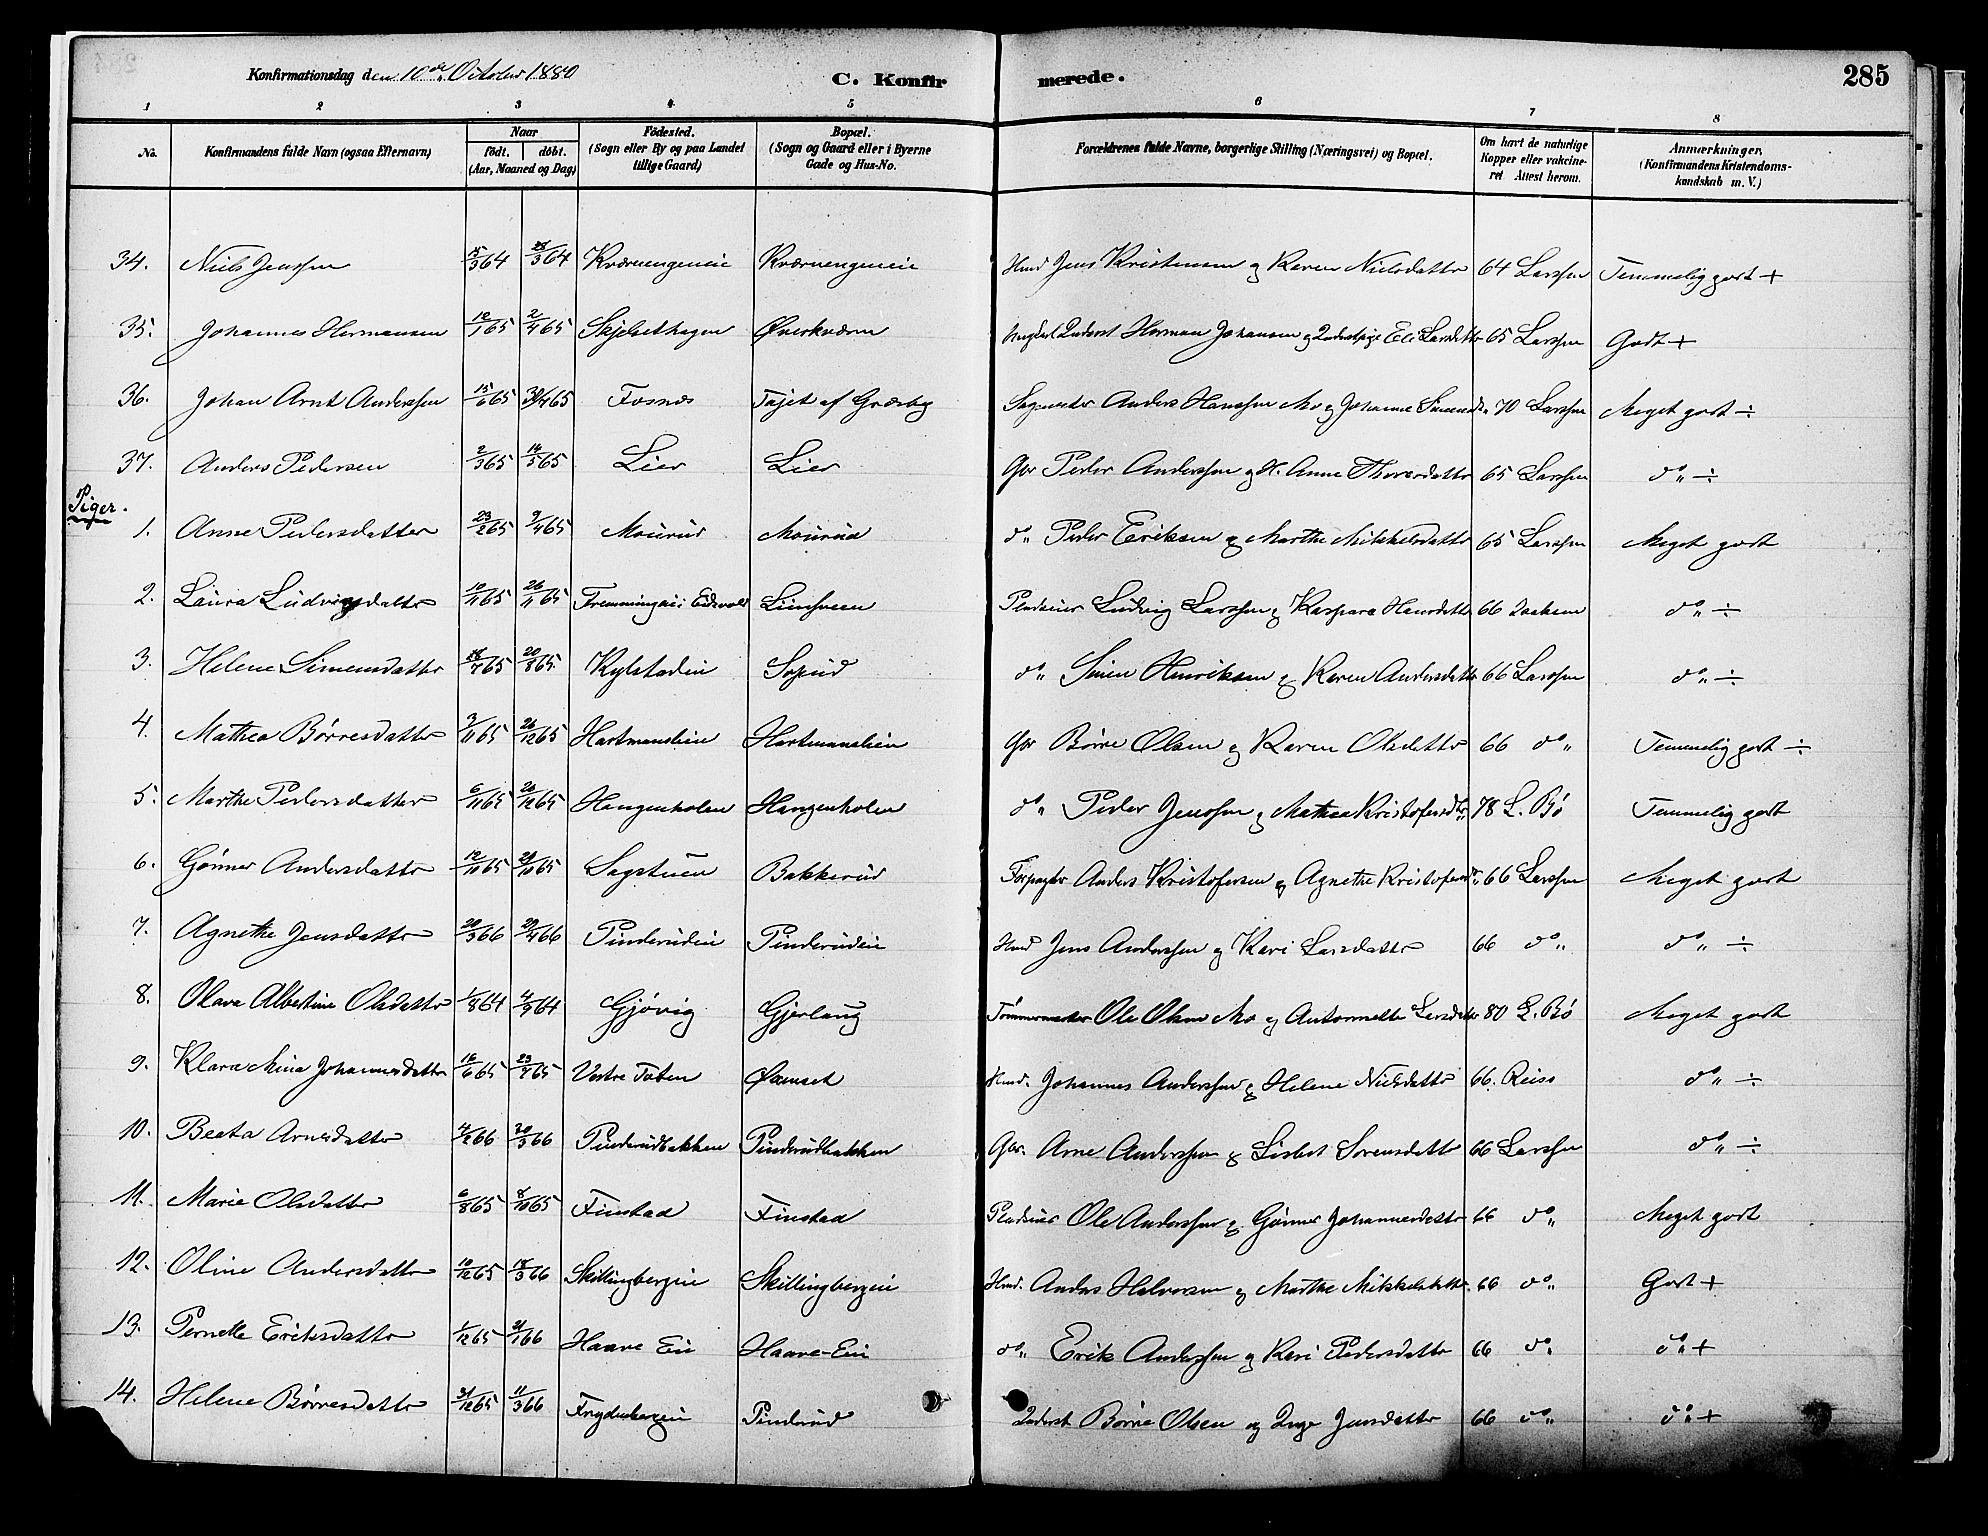 Konfirmationsdag den 10de October 1880 C. Konfirmerede. 285
1 2 3 4 5 6 7 8
No. Konfirmandens fulde Navn (ogsaa Efternavn) Naar født. døbt. (Aar, Maaned og Dag) Fødested. (Sogn eller By og paa Landet tillige Gaard) Bopæl. (Sogn og Gaard eller i Byerne Gade og Hus-No. Forældrenes fulde Navne, borgerlige Stilling (Næringsvei) og Bopæl. Om havt de naturlige Kopper eller vakcineret Attest herom. Anmærkninger, (Konfirmandens Kristendomskundskab m. V.)
34. Niels Jenssen /3 64 /3 64 Kværnengeneie Kværnengeneie Hmd Jens Kristensen og Karen Nielsdatter 64 Larssen Temmelig godt +
35. Johannes Hermansen 12/1 65 2/4 65 Skjelsethagen Øverkværn Ungkarl Inderst Herman Johansen og Inderstpige Eli Larsdatter 65 Larssen Godt +
36. Johan Arnt Anderssen 15/6 65 30/4 65 Fosnæs Tajet af Græsby Sagmester Anders Hanssen Mo og Johanne Simensdtr 70 Larssen Meget godt ÷
37. Anders Pedersen 2/3 65 14/5 65 Lier Lier Gbr Peder Anderssen og H. Anne Thoresdatter 65 Larssen do ÷
Piger.
1. Anne Pedersdatter 23/2 65 9/4 65 Mourud Mourud do Peder Eriksen og Marthe Mikkelsdatter 65 Larssen Meget godt
2. Laura Ludvigsdatter 10/11 65 26/11 65 Fremmingeie i Eidsvold Linsveen Pladseier Ludvig Larssen og Kaspara Hansdatter 66 Isaksen do ÷
3. Helene Simensdatter /7 65 20/8 65 Kylstadeie Sogud do Simen Henriksen og Karen Andersdatter 66 Larssen do ÷
4. Mathea Børresdatter 3/11 65 26/12 65 Hartmanseien Hartmanseien Gbr Børre Olsen og Karen Olsdatter 66 do Temmelig godt ÷
5. Marthe Pedersdatter 6/11 65 26/12 65 Hangenholen Hangenholen do Peder Jenssen og Mathea Kristofersdtr 78 L. Bø Temmelig godt
6. Gønner Andersdatter 12/10 65 29/10 65 Sagstuen Bakkerud Forpagter Anders Kristofersen og Agnethe Kristofersdtr 66 Larssen Meget godt
7. Agnethe Jensdatter 20/3 66 29/4 66 Pinderudeie Pinderudeie Hmd Jens Anderssen og Kari Larsdatter 66 do do ÷
8. Olava Albertine Olsdatter 1/8 64 4/9 64 Gjøvig Gjerlaug Tømmermester Ole Olsen Mo og Antonnette Larsdatter 80 L. Bø Meget godt
9. Klara Mina Johannesdatter 16/6 65 23/7 65 Vestre Toten Ørnset Hmd. Johannes Anderssen og Helene Nielsdatter 66. Reiss do ÷
10. Beata Arnesdatter 4/2 66 20/3 66 Pinderudbakken Pinderudbakken Gbr. Arne Anderssen og Lisbet Sørensdatter 66 Larssen do ÷
11. Marie Olsdatter 6/8 65 8/10 65 Finstad Finstad Pladseier Ole Anderssen og Gønner Johannesdatter 66 do Meget godt
12. Oline Andersdatter 10/12 65 18/3 66 Skillingbergeie Skillingbergeie Hmd. Anders Halvorsen og Marthe Mikkelsdatter 66 do Godt +
13. Pernelle Eriksdatter 1/12 65 21/1 66 Haave Eie Haave-Eie do Erik Anderssen og Kari Pedersdatter 66 do do +
14. Helene Børresdatter 31/12 65 11/3 66 Frydenbergeie Pinderud Inderst Børre Olsen og Inge Jensdatter 66 do do +